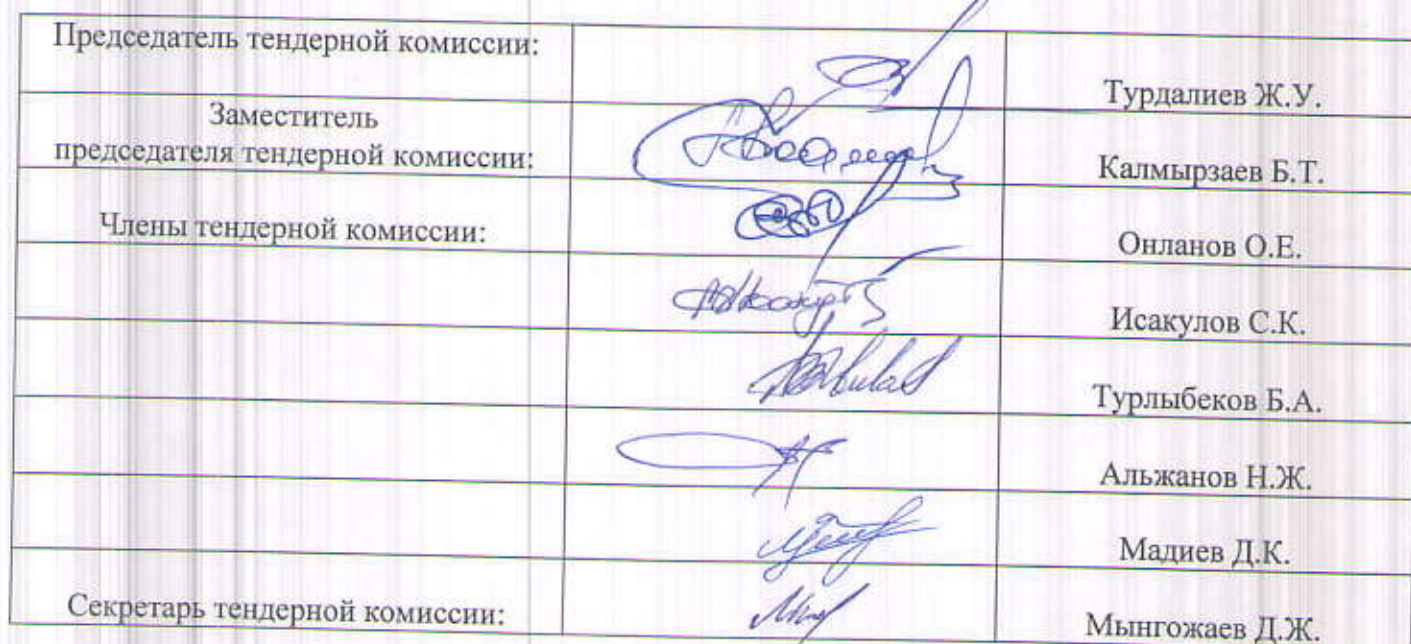 Председатель тендерной комиссии:
Турдалиев Ж.У.
Заместитель
председателя тендерной комиссии:
Калмырзаев Б.Т.
Члены тендерной комиссии:
Онланов О.Е.
Исакулов С.К.
Турлыбеков Б.А.
Альжанов Н.Ж.
Мадиев Д.К.
Секретарь тендерной комиссии:
Мынгожаев Д.Ж.